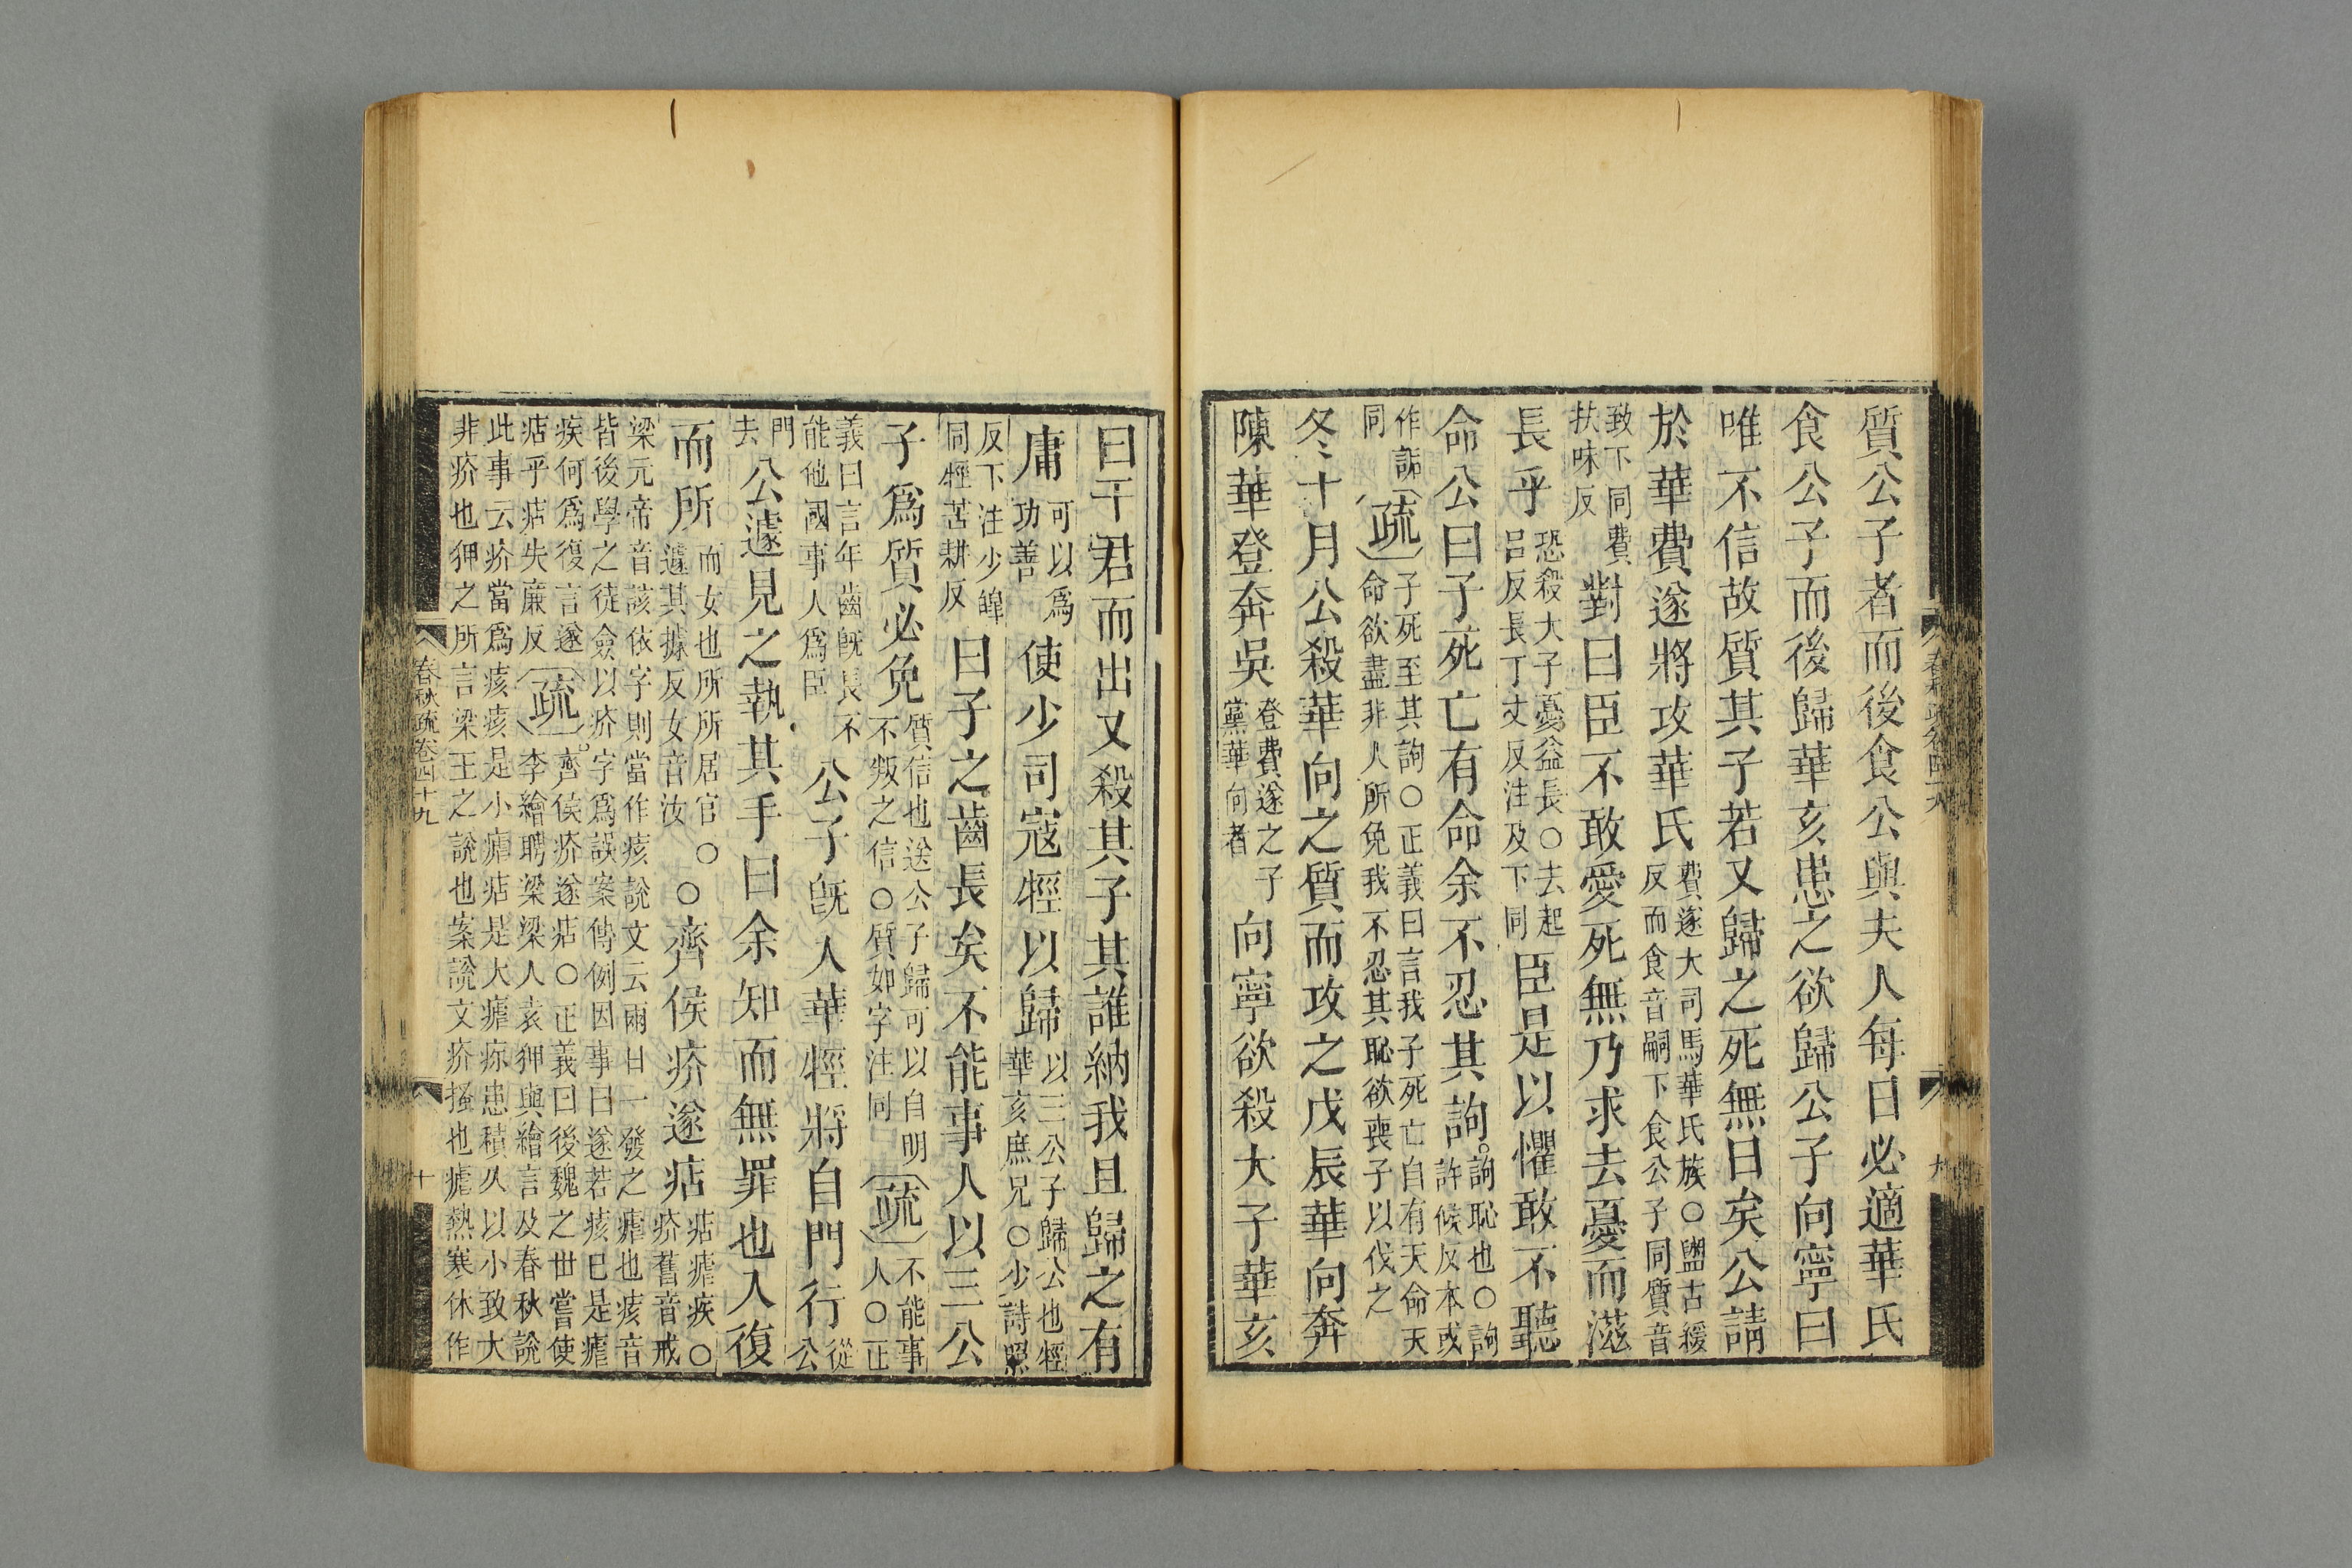 春秋疏卷四十九
九
質公子者而後食公與夫人每日必適華氏
食公子而後歸華亥患之欲歸公子向寧曰
唯不信故質其子若又歸之死無日矣公請
於華費遂將攻華氏費遂大司馬華氏族○盬古緩
反而食音嗣下食公子同質音
致下同費
扶味反對曰臣不敢愛死無乃求去憂而滋
長乎恐殺大子憂益長○去起
呂反長丁丈反注及下同臣是以懼敢不聽
命公曰子死亡有命余不忍其訽訽恥也○訽
許候反本或
作詬
同疏子死至其訽○正義曰言我子死亡自有天命天
命欲盡非人所免我不忍其恥欲喪子以伐之
冬十月公殺華向之質而攻之戊辰華向奔
陳華登奔吳登費遂之子
黨華向者向寧欲殺大子華亥
曰干君而出又殺其子其誰納我且歸之有
庸可以爲
功善使少司寇牼以歸以三公子歸公也牼
華亥庶兄○少詩照
反下注少皥
同牼苦耕反曰子之齒長矣不能事人以三公
子爲質必免質信也送公子歸可以自明
不叛之信○質如字注同疏不能事
人○正
義曰言年齒旣長不
能他國事人爲臣公子旣入華牼將自門行從
公
門
去公遽見之執其手曰余知而無罪也入復
而所而女也所所居官○
遽其據反女音汝○齊侯疥遂痁痁瘧疾○
疥舊音戒
梁元帝音該依字則當作痎說文云兩日一發之瘧也痎音
皆後學之徒僉以疥字爲誤案傳例因事曰遂若痎已是瘧
疾何爲復言遂
痁乎痁失廉反疏齊侯疥遂痁○正義曰後魏之世嘗使
李繪聘梁梁人袁狎與繪言及春秋說
此事云疥當爲痎痎是小瘧痁是大瘧疹患積久以小致大
非疥也狎之所言梁王之說也案說文疥搔也瘧熱寒休作
春秋疏卷四十九
十